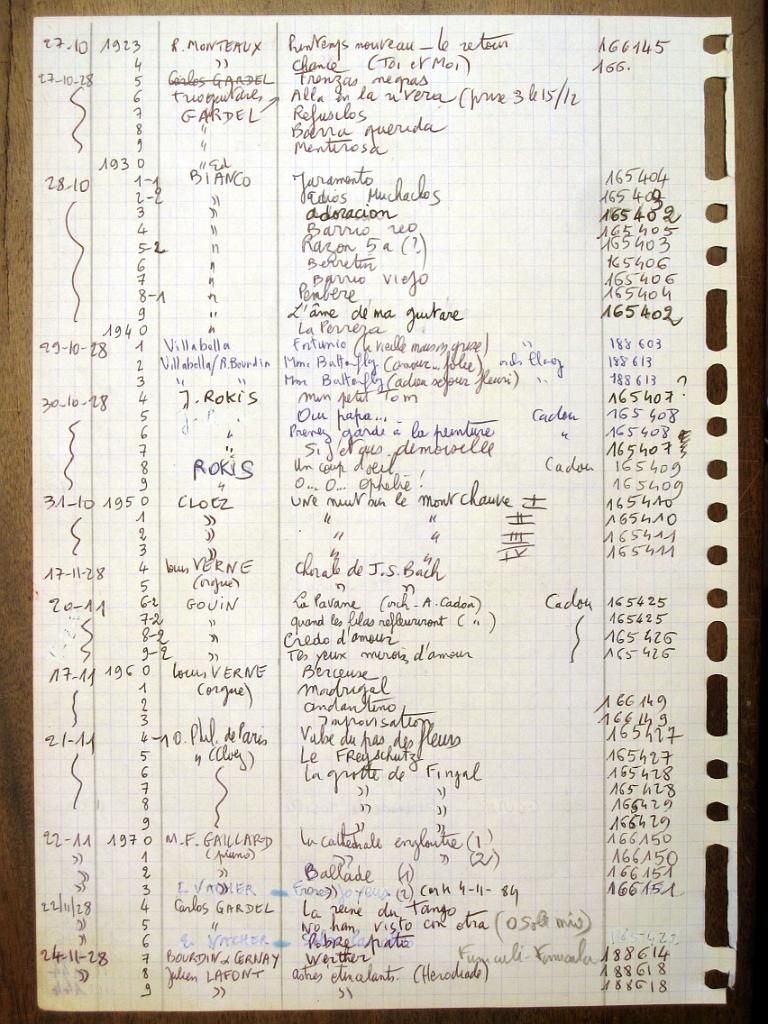 27-10 1923 R. MONTEAUX Printemps nouveau - le retour 166145
4 " Chance (Toi et Moi) 166.
27-10-28 5 Carlos GARDEL Trenzas negras
6 Trio guitares Alla en la rivera (prise 3 le 15/12
7 GARDEL Refusilos
8 " Barra querida
9 " Mentirosa
1930 "
28-10 1-1 BIANCO Juramento 165404
2-2 " Adios Muchachos 165403
3 " adoracion 165402
4 " Barrio reo 165405
5-2 " Razon 5a (?) 165403
6 " Berretin 165406
7 " Barrio viejo 165406
8-1 " Penbere 165404
9 " L'âme de ma guitare 165402
1940 " La Perreza
29-10-28 1 Villabella Fortunio (la vieille maison grise) " 188603
2 Villabella/R.Bourdin Mme Butterfly (amour.. folie) orch Cloez 188613
3 " " Mme Butterfly (adieu séjour fleuri) " 188613
30-10-28 4 J. ROKIS mon petit Tom 165407 ?
5 J-P. Oui papa... Cadou 165408
6 " Prenez garde à la peinture " 165408
7 " Si j'etais demoiselle 165407 ?
8 ROKIS Un coup d'oeil Cadou 165409
9 " O... O... Ophélie ! 165409
31-10 1950 CLOEZ une nuit sur le mont chauve I 165410
1 " " " II 165410
2 " " " III 165411
3 " " " IV 165411
17-11-28 4 Louis VERNE Chorale de J.S.Bach
5 (orgue) "
20-11 6-2 GOUIN La Pavane (orch. A. Cadou) Cadou 165425
7-2 " quand les lilas refleuriront ( " ) 165425
8-2 " Credo d'amour 165426
9-2 " Tes yeux miroirs d'amour 165426
17-11 1960 Louis VERNE Berceuse
1 (orgue) madrigal
2 andantino 166149
3 Improvisation 166149
21-11 4-1 O. Phil. de Paris Valse du pas des fleurs 165427
5 " (Cloez) Le FREyschutz 165427
6 La grotte de Fingal 165428
7 " " 165428
8 " " 166429
9 " " 166429
22-11 1970 M.F. GAILLARD La cathédrale engloutie (1) 166150
" 1 (piano) " " (2) 166150
" 2 Ballade (1) 166151
" 3 E. VACHER " (2) 4-11-84 166151
22/11/28 4 Carlos GARDEL La reine du Tango
" 5 " No han visto con otra (O sole mio)
" 6 E. VACHER Pobre pato 165422
24-11-28 7 BOURDIN & CERNAY Werther Funiculi-Funicula 188614
" 8 Julien LAFONT astres étincelants. (Hérodiade) 188618
9 " " 188618